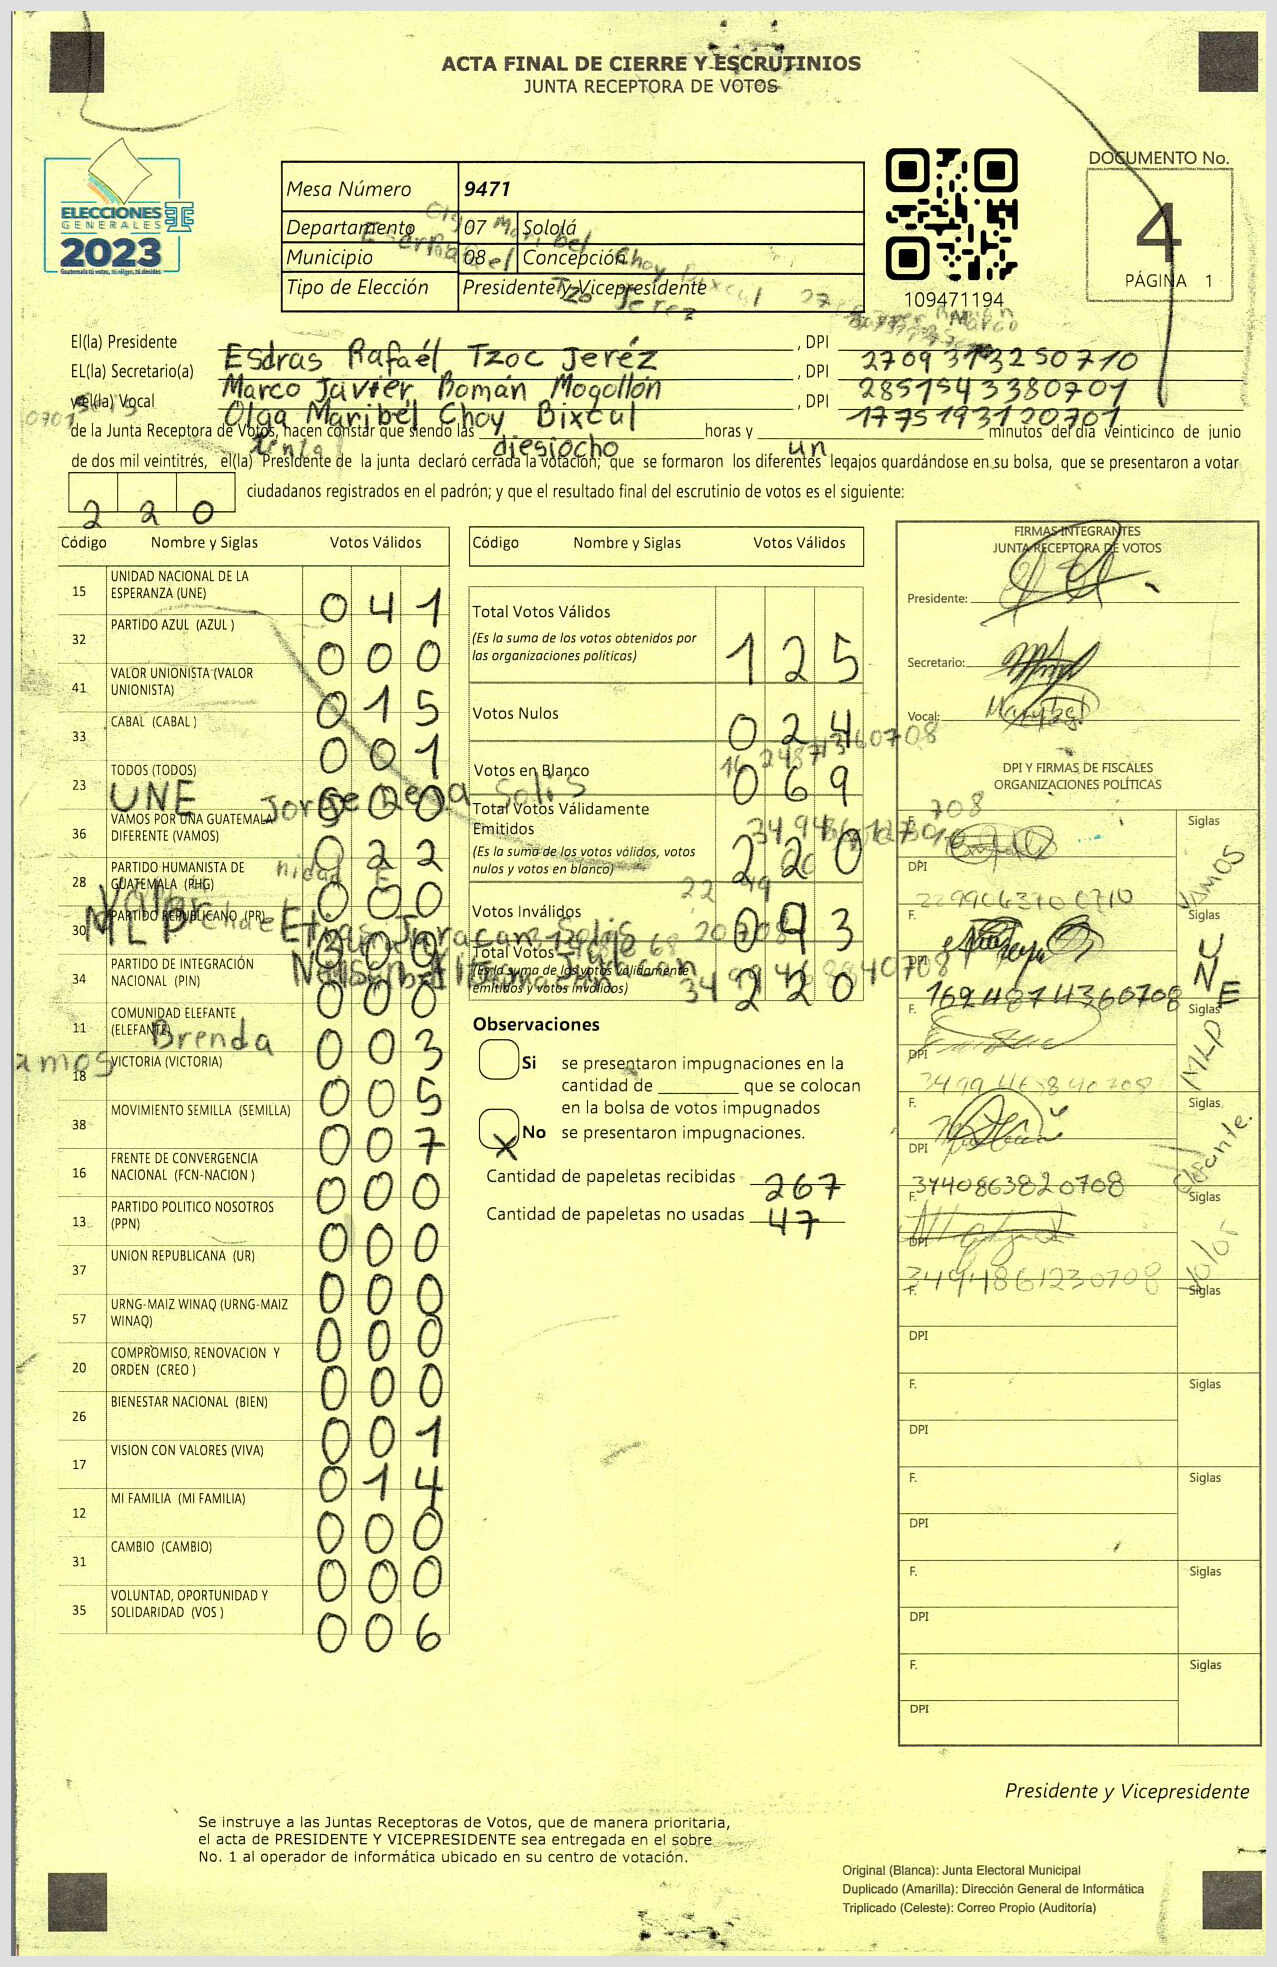 ACTA FINAL DE CIERRE Y ESCRUTINIOS
JUNTA RECEPTORA DE VOTOS
ELECCIONES
GENERALES
2023
Guatemala tú votas, tú eliges, tú decides
Mesa Número 9471
Departamento 07 Sololá
Municipio 08 Concepción
Tipo de Elección Presidente y Vicepresidente
109471194
DOCUMENTO No.
4
PÁGINA 1
El(la) Presidente Esdras Rafaél Tzoc Jeréz , DPI 2709313250710
EL(la) Secretario(a) Marco Javier Román Mogollón , DPI 2851543380701
y el(la) Vocal Olga Maribel Choy Bixcul , DPI 1775193120701
de la Junta Receptora de Votos, hacen constar que siendo las diesiocho horas y un minutos del día veinticinco de junio
de dos mil veintitrés, el(la) Presidente de la junta declaró cerrada la votación; que se formaron los diferentes legajos quardándose en su bolsa, que se presentaron a votar
220 ciudadanos registrados en el padrón; y que el resultado final del escrutinio de votos es el siguiente:
Código Nombre y Siglas Votos Válidos
15 UNIDAD NACIONAL DE LA ESPERANZA (UNE) 041
32 PARTIDO AZUL (AZUL ) 000
41 VALOR UNIONISTA (VALOR UNIONISTA) 015
33 CABAL (CABAL ) 001
23 TODOS (TODOS) 000
36 VAMOS POR UNA GUATEMALA DIFERENTE (VAMOS) 022
28 PARTIDO HUMANISTA DE GUATEMALA (PHG) 000
30 PARTIDO REPUBLICANO (PR) 000
34 PARTIDO DE INTEGRACIÓN NACIONAL (PIN) 000
11 COMUNIDAD ELEFANTE (ELEFANTE) 003
18 VICTORIA (VICTORIA) 005
38 MOVIMIENTO SEMILLA (SEMILLA) 007
16 FRENTE DE CONVERGENCIA NACIONAL (FCN-NACION ) 000
13 PARTIDO POLITICO NOSOTROS (PPN) 000
37 UNION REPUBLICANA (UR) 000
57 URNG-MAIZ WINAQ (URNG-MAIZ WINAQ) 000
20 COMPROMISO, RENOVACION Y ORDEN (CREO ) 000
26 BIENESTAR NACIONAL (BIEN) 001
17 VISION CON VALORES (VIVA) 014
12 MI FAMILIA (MI FAMILIA) 000
31 CAMBIO (CAMBIO) 000
35 VOLUNTAD, OPORTUNIDAD Y SOLIDARIDAD (VOS ) 006
UNE Jorge
Valor
MLP
Brenda
Código Nombre y Siglas Votos Válidos
Total Votos Válidos 125
(Es la suma de los votos obtenidos por
las organizaciones politicas)
Votos Nulos 024
Votos en Blanco 069
Total Votos Válidamente
Emitidos 220
(Es la suma de los votos válidos, votos
nulos y votos en blanco)
Votos Inválidos 093
Total Votos 220
(Es la suma de los votos válidamente
emitidos y votos inválidos)
Observaciones
Si se presentaron impugnaciones en la
cantidad de ________ que se colocan
en la bolsa de votos impugnados
X No se presentaron impugnaciones.
Cantidad de papeletas recibidas 267
Cantidad de papeletas no usadas 47
FIRMAS INTEGRANTES
JUNTA RECEPTORA DE VOTOS
Presidente:
Secretario:
Vocal:
DPI Y FIRMAS DE FISCALES
ORGANIZACIONES POLÍTICAS
F. Siglas VAMOS
DPI
F. Siglas UNE
DPI 1692487414360708
F. Siglas MLP
DPI
F. Siglas Elefante.
DPI 3440863820708
F. Siglas Valor
DPI 3494861230708
F. Siglas
DPI
F. Siglas
DPI
F. Siglas
DPI
F. Siglas
DPI
F. Siglas
DPI
Presidente y Vicepresidente
Se instruye a las Juntas Receptoras de Votos, que de manera prioritaria,
el acta de PRESIDENTE Y VICEPRESIDENTE sea entregada en el sobre
No. 1 al operador de informática ubicado en su centro de votación.
Original (Blanca): Junta Electoral Municipal
Duplicado (Amarilla): Dirección General de Informática
Triplicado (Celeste): Correo Propio (Auditoría)